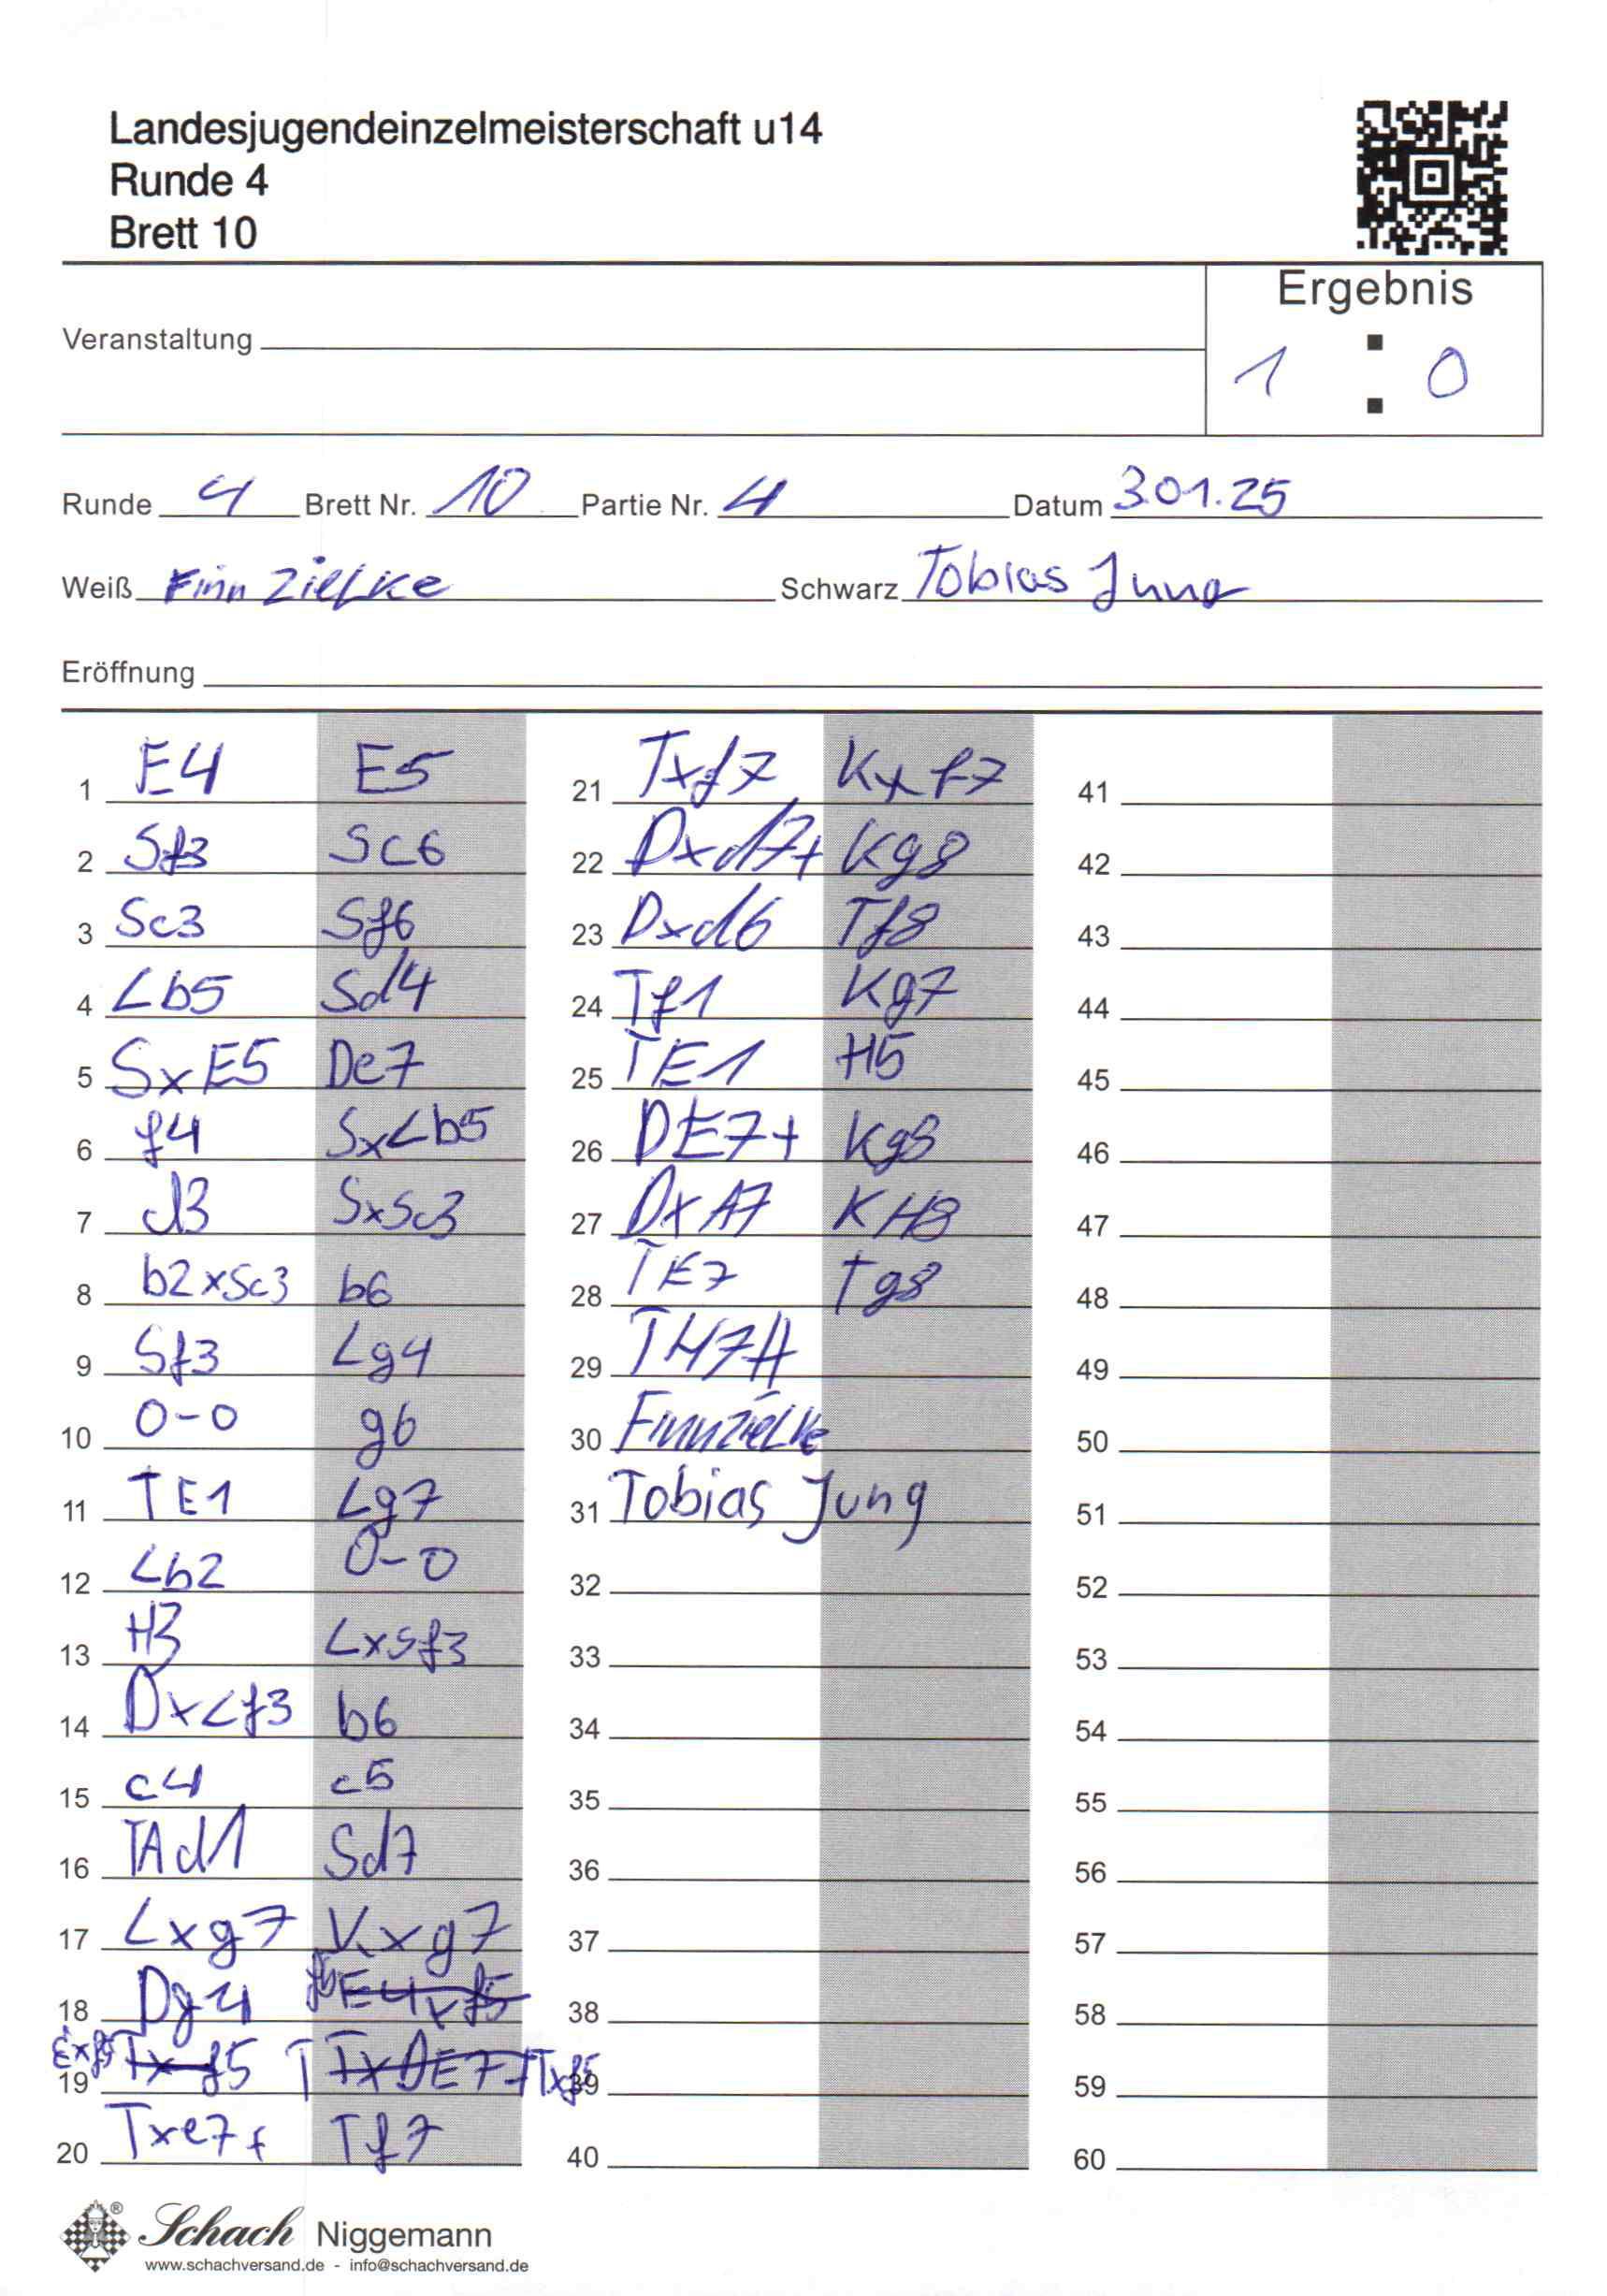 Landesjugendeinzelmeisterschaft u14
Runde 4
Brett 10
Ergebnis
Veranstaltung
1 : 0
Runde 4 Brett Nr. 10 Partie Nr. 4 Datum 3.01.25
Weiß Finn Zielke Schwarz Tobias Jung
Eröffnung
1 E4 E5
2 Sf3 Sc6
3 Sc3 Sf6
4 Lb5 Sd4
5 SxE5 De7
6 f4 SxLb5
7 d3 SxSc3
8 b2xSc3 b6
9 Sf3 Lg4
10 0-0 g6
11 TE1 Lg7
12 Lb2 0-0
13 H3 LxSf3
14 DxLf3 b6
15 c4 c5
16 TAd1 Sd7
17 Lxg7 Kxg7
18 Dg4 E4xf5
19 Exf5 Tx f5 T TxDE7+ Txf5
20 Txe7+ Tf7
21 Txf7 Kxf7
22 Dxd7+ Kg8
23 Dxd6 Tf8
24 Tf1 Kg7
25 TE1 H5
26 DE7+ Kg8
27 DxA7 KH8
28 TE7 Tg8
29 TH7#
30 Finn Zielke
31 Tobias Jung
32
33
34
35
36
37
38
39
40
41
42
43
44
45
46
47
48
49
50
51
52
53
54
55
56
57
58
59
60
Schach Niggemann
www.schachversand.de - info@schachversand.de